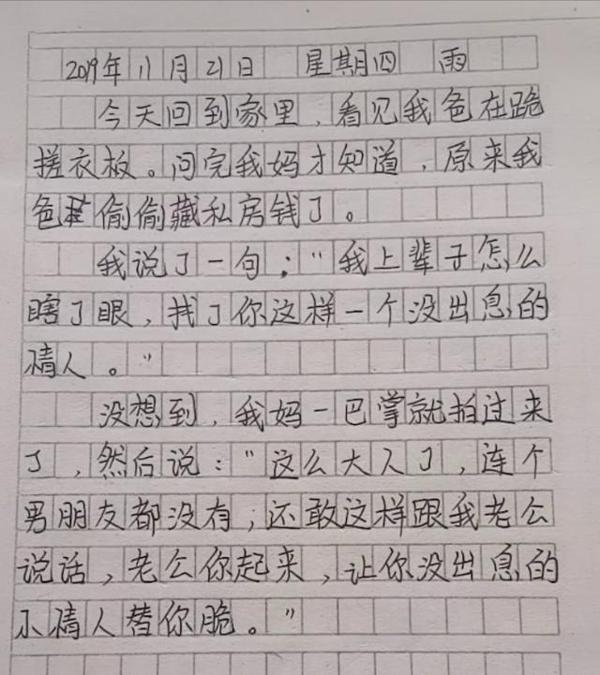 2019年11月21日 星期四 雨
今天回到家里，看见我爸在跪
搓衣板。问完我妈才知道，原来我
爸偷偷藏私房钱了。
我说了一句：“我上辈子怎么
瞎了眼，找了你这样一个没出息的
情人。”
没想到，我妈一巴掌就拍过来
了，然后说：“这么大人了，连个
男朋友都没有，还敢这样跟我老公
说话，老公你起来，让你没出息的
小情人替你跪。”